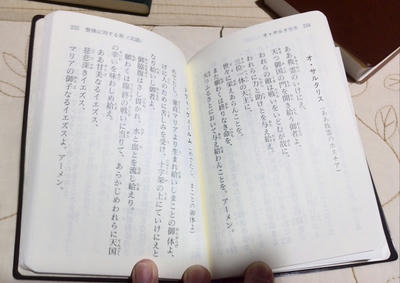 オ・サルタリス
オ・サルタリス（ああ救霊のホスチア）
ああ救霊のいけにえ、
天つ御国の門を開き給いし御者よ、
われらの敵は戦いをいどむが故に、
われらに力と助けとを与え給え。
三位一体の天主に、
世々に栄えあらんことを、
われらに終りなき命を、
御国において与え給わんことを。アーメン。
まことの御体よ）
童貞マリアより生まれ給いしまことの御体よ、
人のために苦しみを受け、十字架の上にていけにえと
なり給いし御体よ、
御脇腹は刺し貫かれ、水と血とを流し給えり。
願わくは臨終の戦いに当りて、あらかじめわれらに天国の
幸いを味わしめ給え。
ああ甘美なるイエズスよ、
慈悲深きイエズスよ、
マリアの御子なるイエズスよ、アーメン。